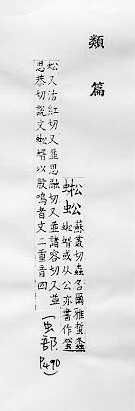 類篇
蜙蚣 蘇叢切蟲名爾雅蜇螽
蜙蝑或从公亦書作
蚣又沽紅切又並思融切又並諸容切又並
思恭切説文蜙蝑以股鳴者文二重音四
[虫部
P490]